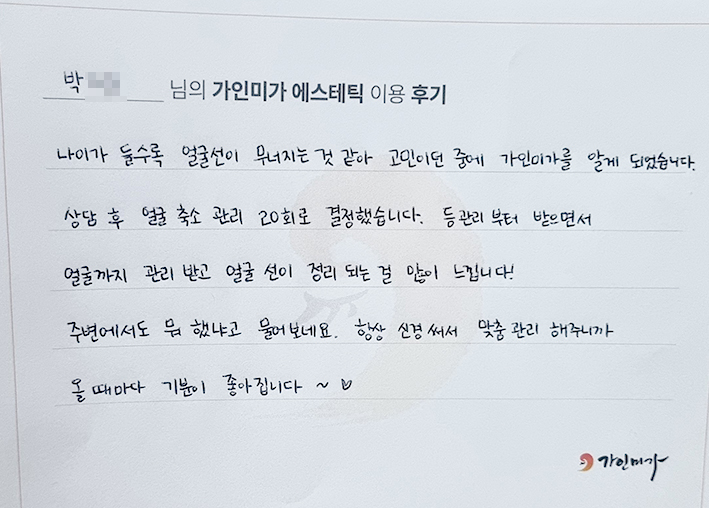 박 님의 가인미가 에스테틱 이용 후기
나이가 들수록 얼굴선이 무너지는 것 같아 고민이던 중에 가인미가를 알게 되었습니다.
상담 후 얼굴 축소 관리 20회로 결정했습니다. 등관리부터 받으면서
얼굴까지 관리 받고 얼굴 선이 정리 되는 걸 많이 느낍니다!
주변에서도 뭐 했냐고 물어보네요. 항상 신경써서 맞춤관리 해주니까
올 때마다 기분이 좋아집니다 ~ ♡
가인미가